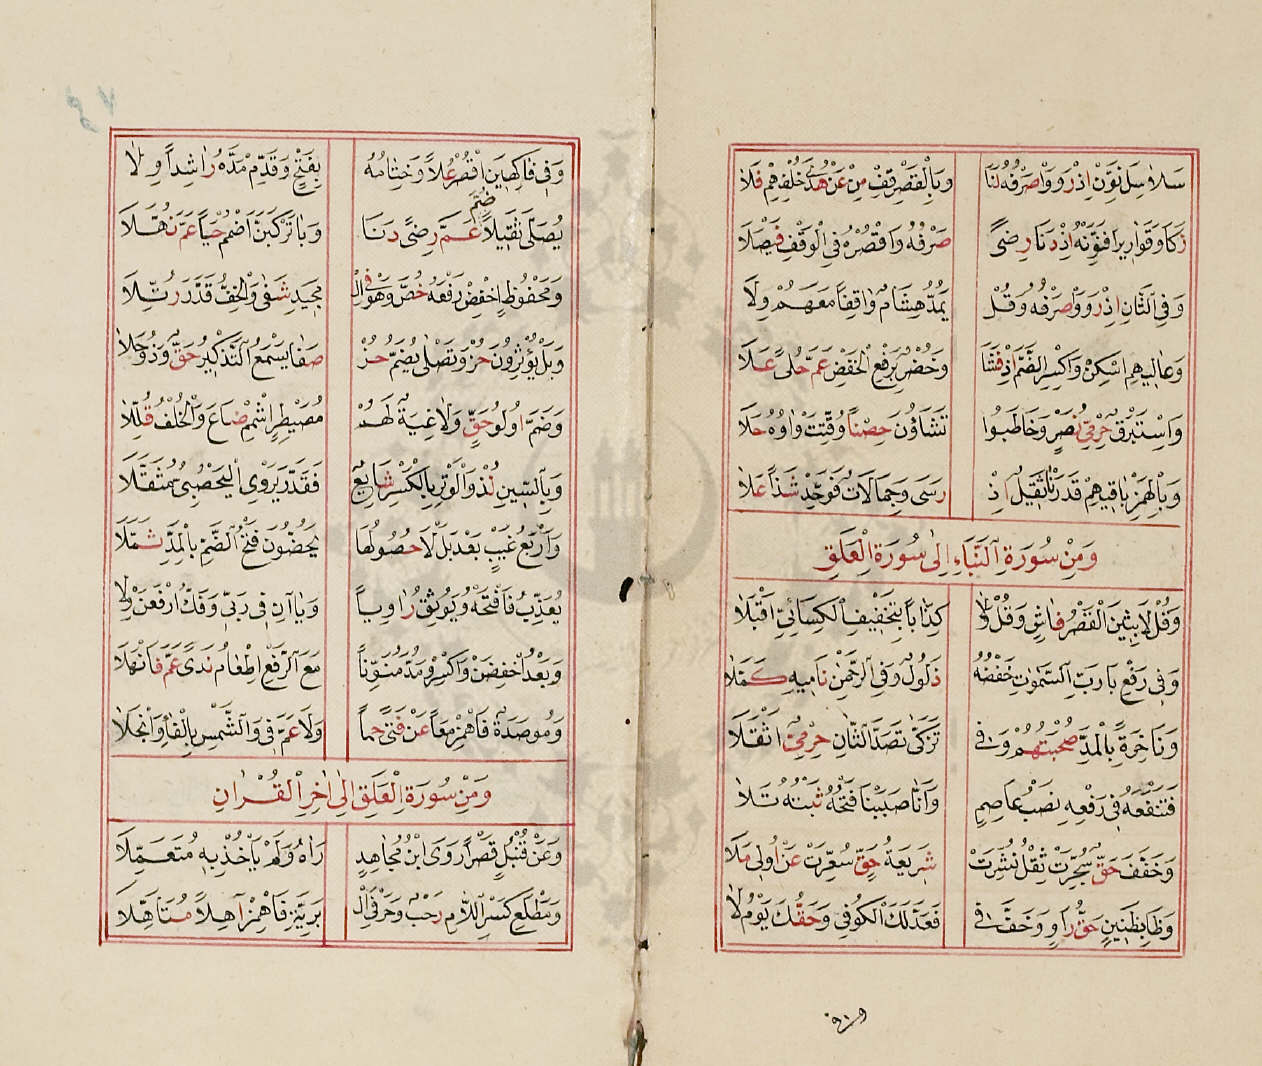 سَلَاسِلَ نَوِّنْ اِذْ رَوَوْا صَرْفَهُ لَنَا وَبِالْقَصْرِ قِفْ مِنْ عَنْ هُدًى خُلْفُهُمْ فَلَا
زَكَا وَقَوَارِيرًا فَنَوِّنْهُ اِذْ دَنَا رِضَى صَرْفِهِ وَاقْصُرْهُ فِي الْوَقْفِ فَيْصَلَا
وَفِي الثَّانِ اِذْ رَوَوْا صَرْفَهُ وَقُلْ يَمُدُّ هِشَامٌ وَاقِفًا مَعَهُمْ وِلَا
وَعَالِيهِمْ اسْكِنْ وَاكْسِرِ الضَّمَّ اِذْ فَشَا وَخُضْرٌ بِرَفْعِ الْخَفْضِ عَمَّ حُلًى عَلَا
وَاِسْتَبْرَقٌ حِرْمِيُّ نَصْرٍ وَخَاطَبُوا تَشَاؤُنَ حِصْنًا وُقِّتَتْ وَاوُهُ حَلَا
وَبِالْهَمْزِ بَاقِيهِمْ قَدَرْنَا ثَقِيلٌ اِذْ رَسَى وَجِمَالَاتٌ فَوَحِّدْ شَذًا عَلَا
وَمِنْ سُورَةِ النَّبَاءِ اِلٰى سُورَةِ الْعَلَقِ
وَقُلْ لَابِثِينَ الْقَصْرُ فَاشٍ وَقُلْ وَلَا كِذَابًا بِتَخْفِيفِ الْكِسَائِيِّ اَقْبَلَا
وَفِي رَفْعِ بَا رَبُّ السَّمٰوَاتِ خَفْضُهُ ذَلُولٌ وَفِي الرَّحْمٰنِ نَامِيهِ كَمَّلَا
وَنَاخِرَةً بِالْمَدِّ صُحْبَتُهُمْ وَفِي تَزَكّٰى تَصَدَّا الثَّانِ حِرْمِيٌّ اثْقَلَا
فَتَنْفَعُهُ فِي رَفْعِهِ نَصْبُ عَاصِمٍ وَاَنَّا صَبَبْنَا فَتْحُهُ ثَبْتُهُ تَلَا
وَخَفَّفَ حَقٌّ سُجِّرَتْ ثِقْلُ نُشِّرَتْ شَرِيعَةُ حَقٍّ سُعِّرَتْ عَنْ اُولِي مَلَا
وَظَا بِظَنِينٍ حَقُّ رَاوٍ وَخَفَّ فِي فَعَدَلَكَ الْكُوفِي وَحَقُّكَ يَوْمُ لَا
وَفِي فَاكِهِينَ اقْصُرْ عُلًا وَخِتَامُهُ بِفَتْحٍ وَقَدِّمْ مَدَّهُ رَاشِدًا وِلَا
يُصَلَّى ثَقِيلًا ضُمَّ عَمَّ رِضًى دَنَا وَبَا تَرْكَبَنَّ اضْمُمْ حَيًا عَمَّ نُهَّلَا
وَمَحْفُوظٍ اخْفِضْ رَفْعَهُ خُصَّ وَهُوَ فِي الْ مَجِيدِ شَفٰى وَالْخِفُّ قَدَّرَ رُتِّلَا
وَبَلْ يُؤْثِرُونَ حُزْ وَتَصْلَى يُضَمُّ حُزْ صَفَا يُسْمَعُ التَّذْكِيرُ حَقٌّ وَذُو جِلَا
وَضَمَّ اُولُو حَقٍّ وَلَاغِيَةٌ لَهُمْ مُصَيْطِرٍ اشْمِمْ ضَاعَ وَالْخُلْفُ قُلِّلَا
وَبِالسِّينِ لُذْ وَالْوَتْرِ بِالْكَسْرِ شَايِعٌ فَقَدَّرَ يَرْوِي الْيَحْصُبِيُّ مُثَقَّلَا
وَاَرْبَعُ غَيْبٍ بَعْدَ بَلْ لَا حُصُولُهَا يَحُضُّونَ فَتْحُ الضَّمِّ بِالْمَدِّ ثُمِّلَا
يُعَذِّبُ فَافْتَحْهُ وَيُوثِقُ رَاوِيًا وَيَاآنِ فِي رَبِّي وَفَكُّ ارْفَعَنْ وِلَا
وَبَعْدُ اخْفِضَنْ وَاكْسِرْ وَمُدَّ مُنَوِّنًا مَعَ الرَّفْعِ اِطْعَامٌ نَدًى عَمَّ فَانْهَلَا
وَمُوصَدَةٌ فَاهْمِزْ مَعًا عَنْ فَتًى حِمًا وَلَا عَمَّ فِي وَالشَّمْسِ بِالْفَاءِ وَانْجَلَا
وَمِنْ سُورَةِ الْعَلَقِ اِلٰى اٰخِرِ الْقُرْاٰنِ
وَعَنْ قُنْبُلٍ قَصْرًا رَوَى ابْنُ مُجَاهِدٍ رَآهُ وَلَمْ يَأْخُذْ بِهِ مُتَعَمِّلَا
وَمَطْلَعِ كَسْرُ اللَّامِ رَحْبٌ وَحَرْفَيِ الْ بَرِيَّةِ فَاهْمِزْ آهِلًا مُتَأَهِّلَا